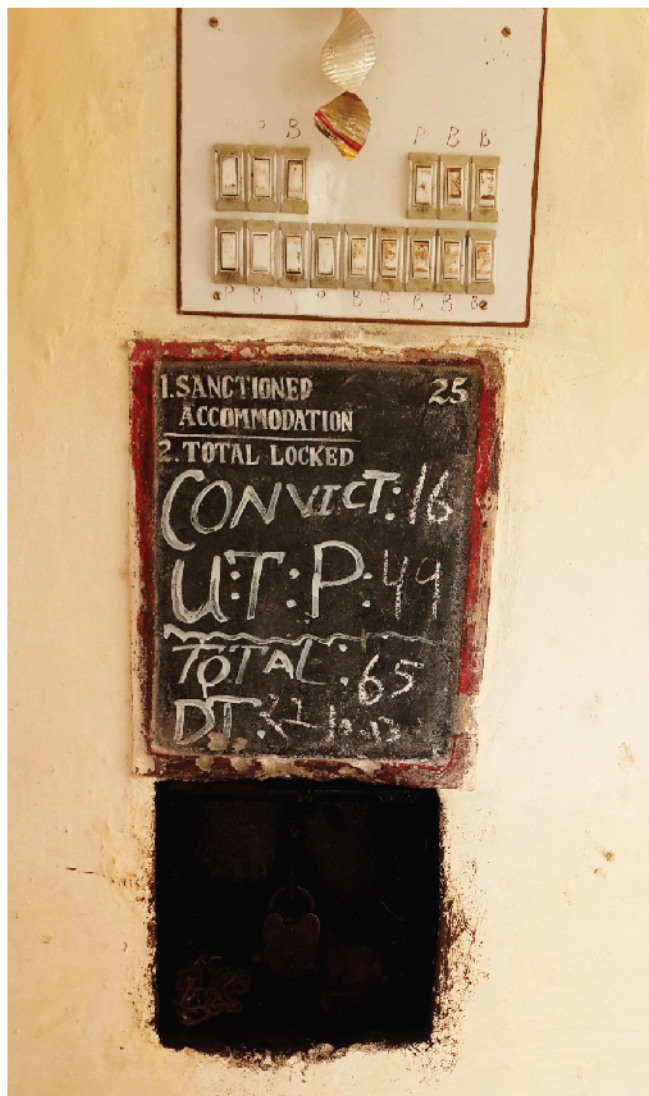 B P B B
P B P B B B B B
1. SANCTIONED 25
ACCOMMODATION
2. TOTAL LOCKED
CONVICT: 16
U:T:P: 49
TOTAL: 65
DT: